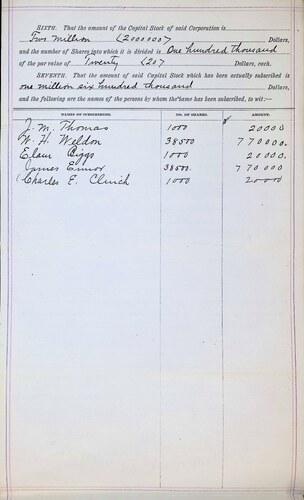 SIXTH. That the amount of the Capital Stock of said Corporation is
Two Million (2000000) Dollars,
and the number of Shares into which it is divided is One hundred thousand
of the par value of Twenty (20) Dollars, each.
SEVENTH. That the amount of said Capital Stock which has been actually subscribed is
one million six hundred thousand Dollars,
and the following are the names of the persons by whom the same has been subscribed, to wit:—
NAMES OF SUBSCRIBERS. NO. OF SHARES. AMOUNT.
J. M. Thomas 1000 $ 20000
W. H. Weldon 38500 770000.
Elam Biggs 1000 20000.
James Ennor 38500. 770000
Charles E. Clinch 1000 20000